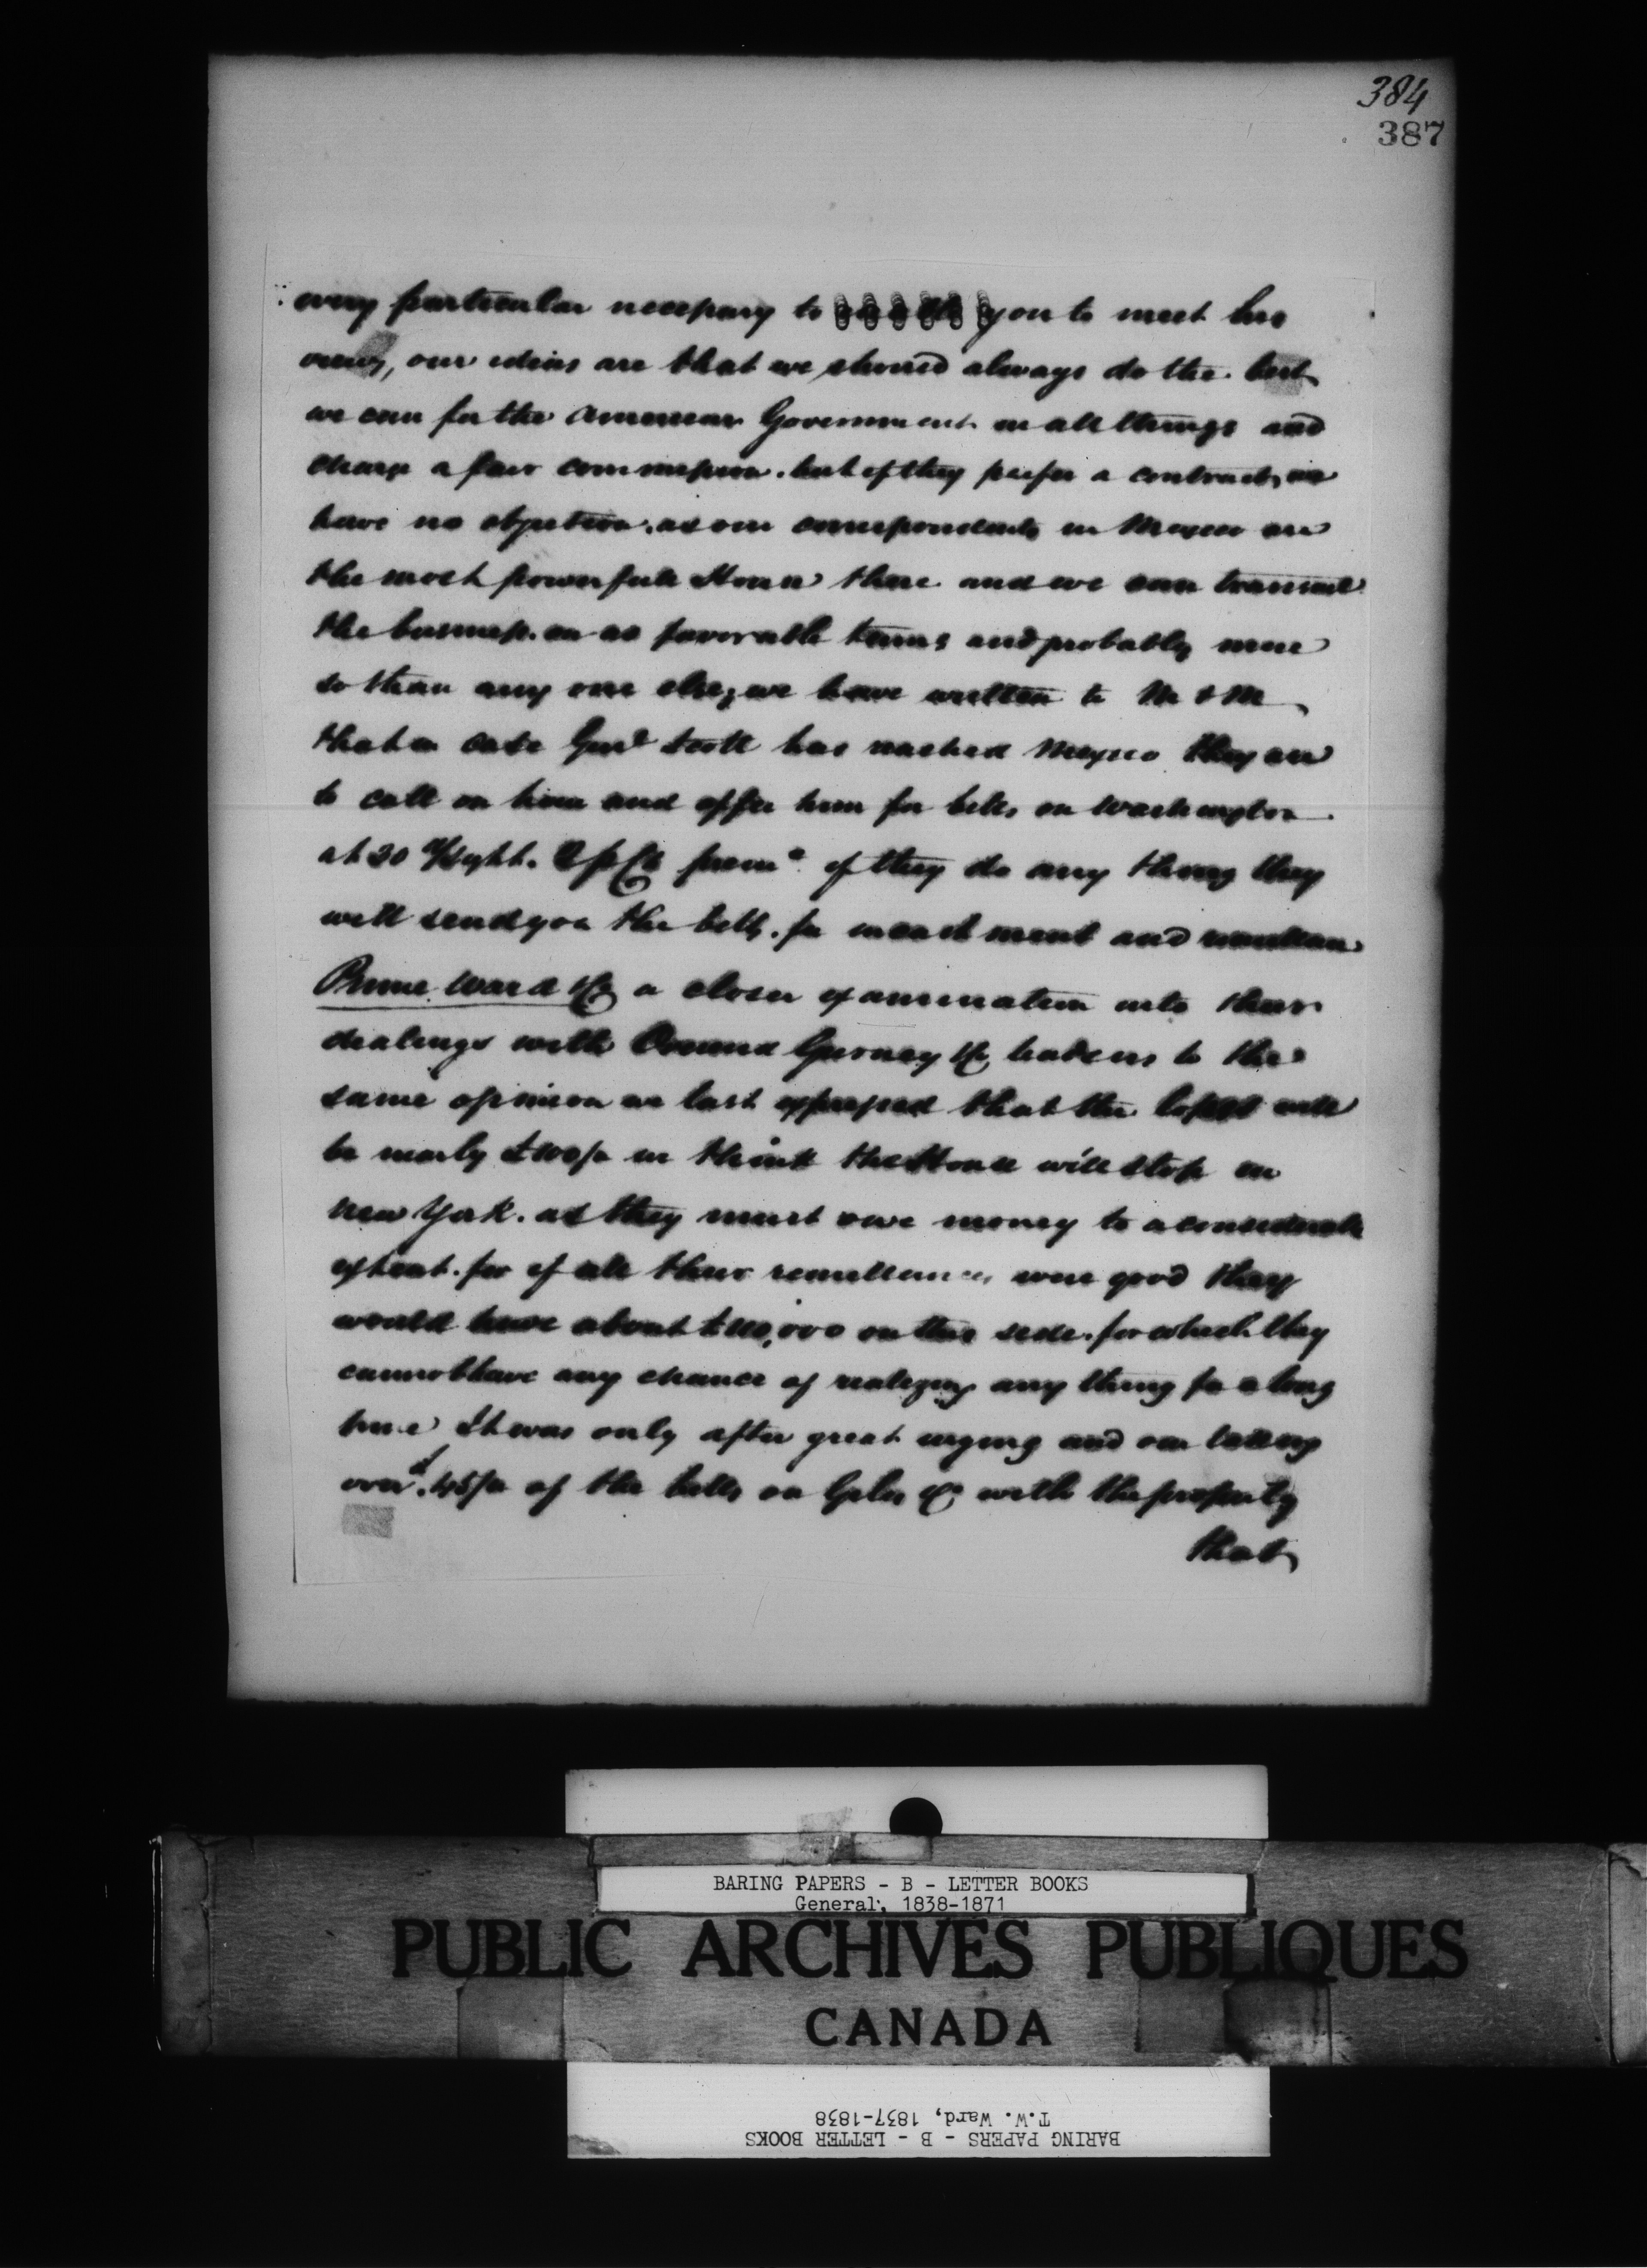 384
387
every particular necessary to enable you to meet his
views, our ideas are that we should always do the best
we can for the American Government in all things and
charge a fair commission. but if they prefer a contract, we
have no objection. as our correspondents in Mexico are
the most powerfull House there and we can transact
the business. on as favorable terms and probably more
so than any one else, we have written to M & M
that in case Genl Scott has reached Mexico they are
to call on him and offer him for bills on Washington
at 30 d/sight. prem. if they do any thing they
will send you the bills. for and
Prime Ward &Co a closer examination into their
dealings with Overend Gurney &Co leads us to the
same opinion we last expressed that the losses will
be nearly we think the House will stop in
New York. as they must owe money to a considerable
extent. for if all their remittances were good they
would have about on this side. for which they
cannot have any chance of realizing any thing for a long
time It was only after great urging and our taking
over of the bills on &Co with the property
that
BARING PAPERS - B - LETTER BOOKS
General, 1838-1871
PUBLIC ARCHIVES PUBLIQUES
CANADA
BARING PAPERS - B - LETTER BOOKS
T.W. Ward, 1837-1838